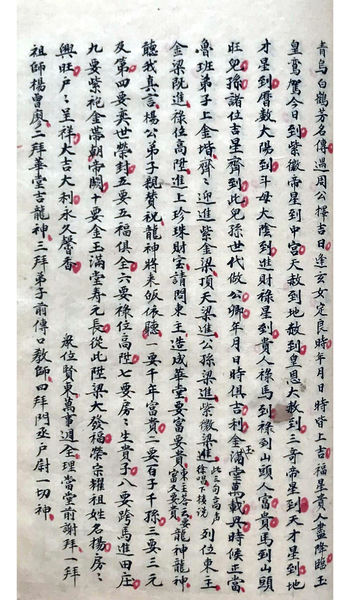 青烏白鶴芳名傳過周公擇吉日逢玄女定良時年月時守上吉福星貴人盡降臨玉
皇鸞駕今日到紫微帝星到中宮天赦到地赦到皇恩大赦到三奇帝星到天才星到地
才星到曆數太陽到斗母太陰到進財祿星到貴人祿馬到祿到山頭人富貴馬到山頭
旺兒孫諸位吉星齊到此兒孫世代做公卿年月日時俱吉利金玉滿堂萬載興時候正當
魯班弟子上金堦齊〻迎進紫金梁頂天梁進公孫梁進紫微梁進此三句高声徐唱接說列位東主
金梁既進祿位高陞進上珍珠財宝請問東主造成華堂要富要貴東主答云要富又要貴龍神龍神
聽我真言楊公弟子親贊祝龍神將來皈依聽一要千年富貴二要百子千孫三要三元
及第四要奕世榮封五要五福俱全六要祿位高陞七要房〻生貴子八要跨馬進田庄
九要紫袍金帶朝帝闕十要金玉滿堂寿元長從此陞梁大發福榮宗耀祖姓名揚房〻
興旺戶〻呈祥大吉大利永久馨香 眾位賢東萬事週全理當堂前謝拜一拜
祖師楊曾廖二拜華堂吉龍神三拜弟子前傳口教師四拜門丞戶尉一切神